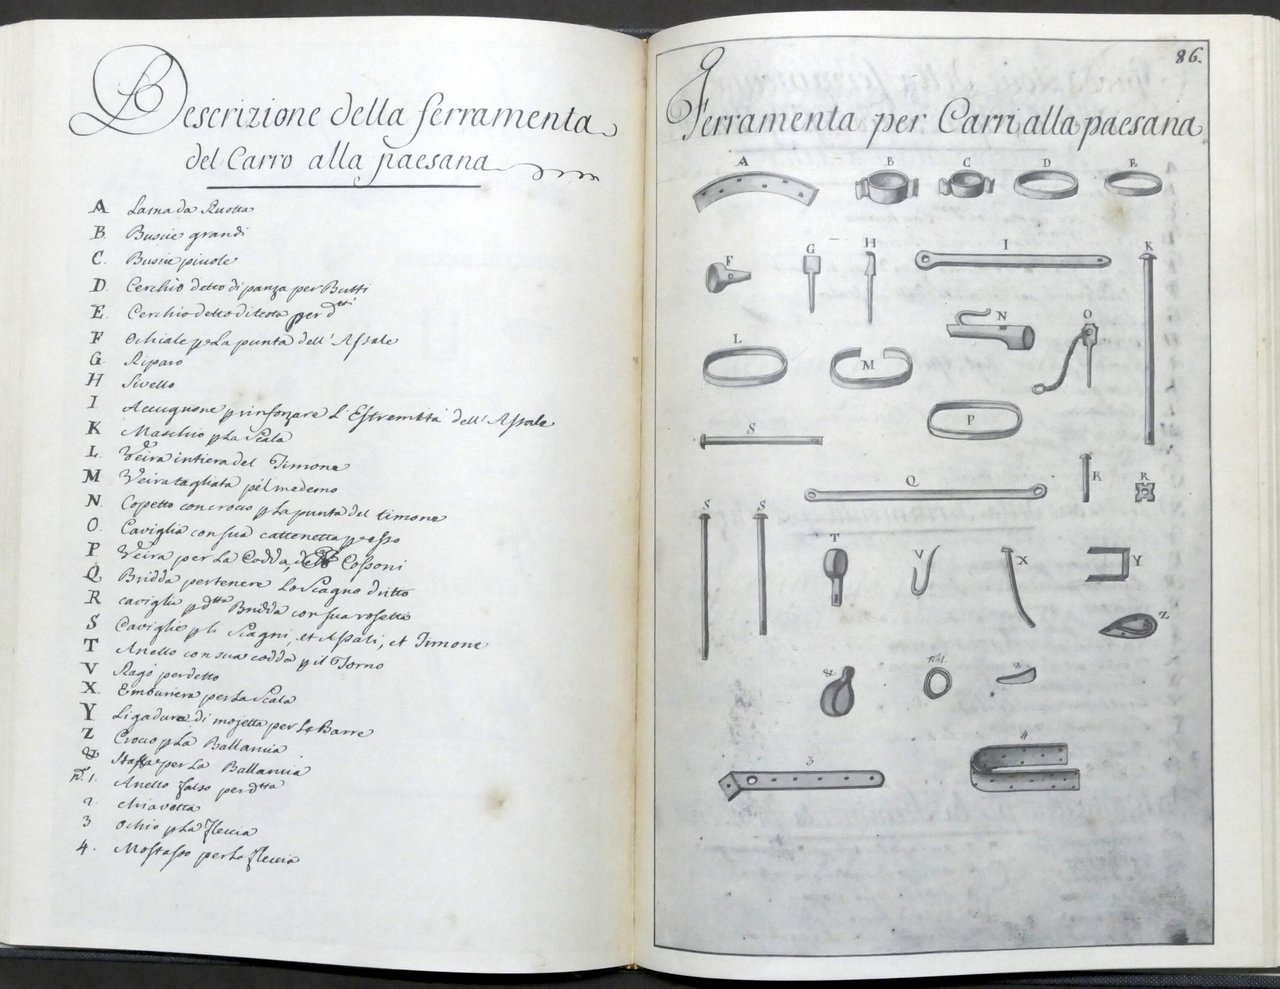 Descrizione della ferramenta
del Carro alla paesana
A Lama da Ruotta
B. Buscie grandi
C. Buscie piciole
D. Cerchio detto di panza per Butti
E. Cerchio detto di testa per dtti
F Ochiale p La punta dell'Assale
G Riparo
H Sivello
I Accugnone p rinforzare L'Estremità dell'Assale
K Maschio p La Scala
L. Veira intiera del Timone
M Veira tagliata pel medemo
N. Copetto con croco p La punta del timone
O. Caviglia con sua cattenetta p esso
P Veira per La Codda, Cossoni
Q Bridda per tenere Lo Scagno dritto
R caviglia p dtta Bridda con sua rosetta
S Caviglie p li Scagni, et Assali, et Timone
T Anello con sua codda p il Torno
V Ragò per detto
X. Emburiera per La Scala
Y Ligadura di mojetta per Le Barre
Z Croco p La Ballancia
& Staffa per La Ballancia
n.° 1. Anello falso per dtta
2 Chiavetta
3 Ochio p La fleccia
4. Mostasso per La fleccia
86.
Ferramenta per Carri alla paesana
A B C D E
F G H I K
L M N O
P
S
Q R R
S S
T V X Y
Z
& n.° 1. 2
3 4